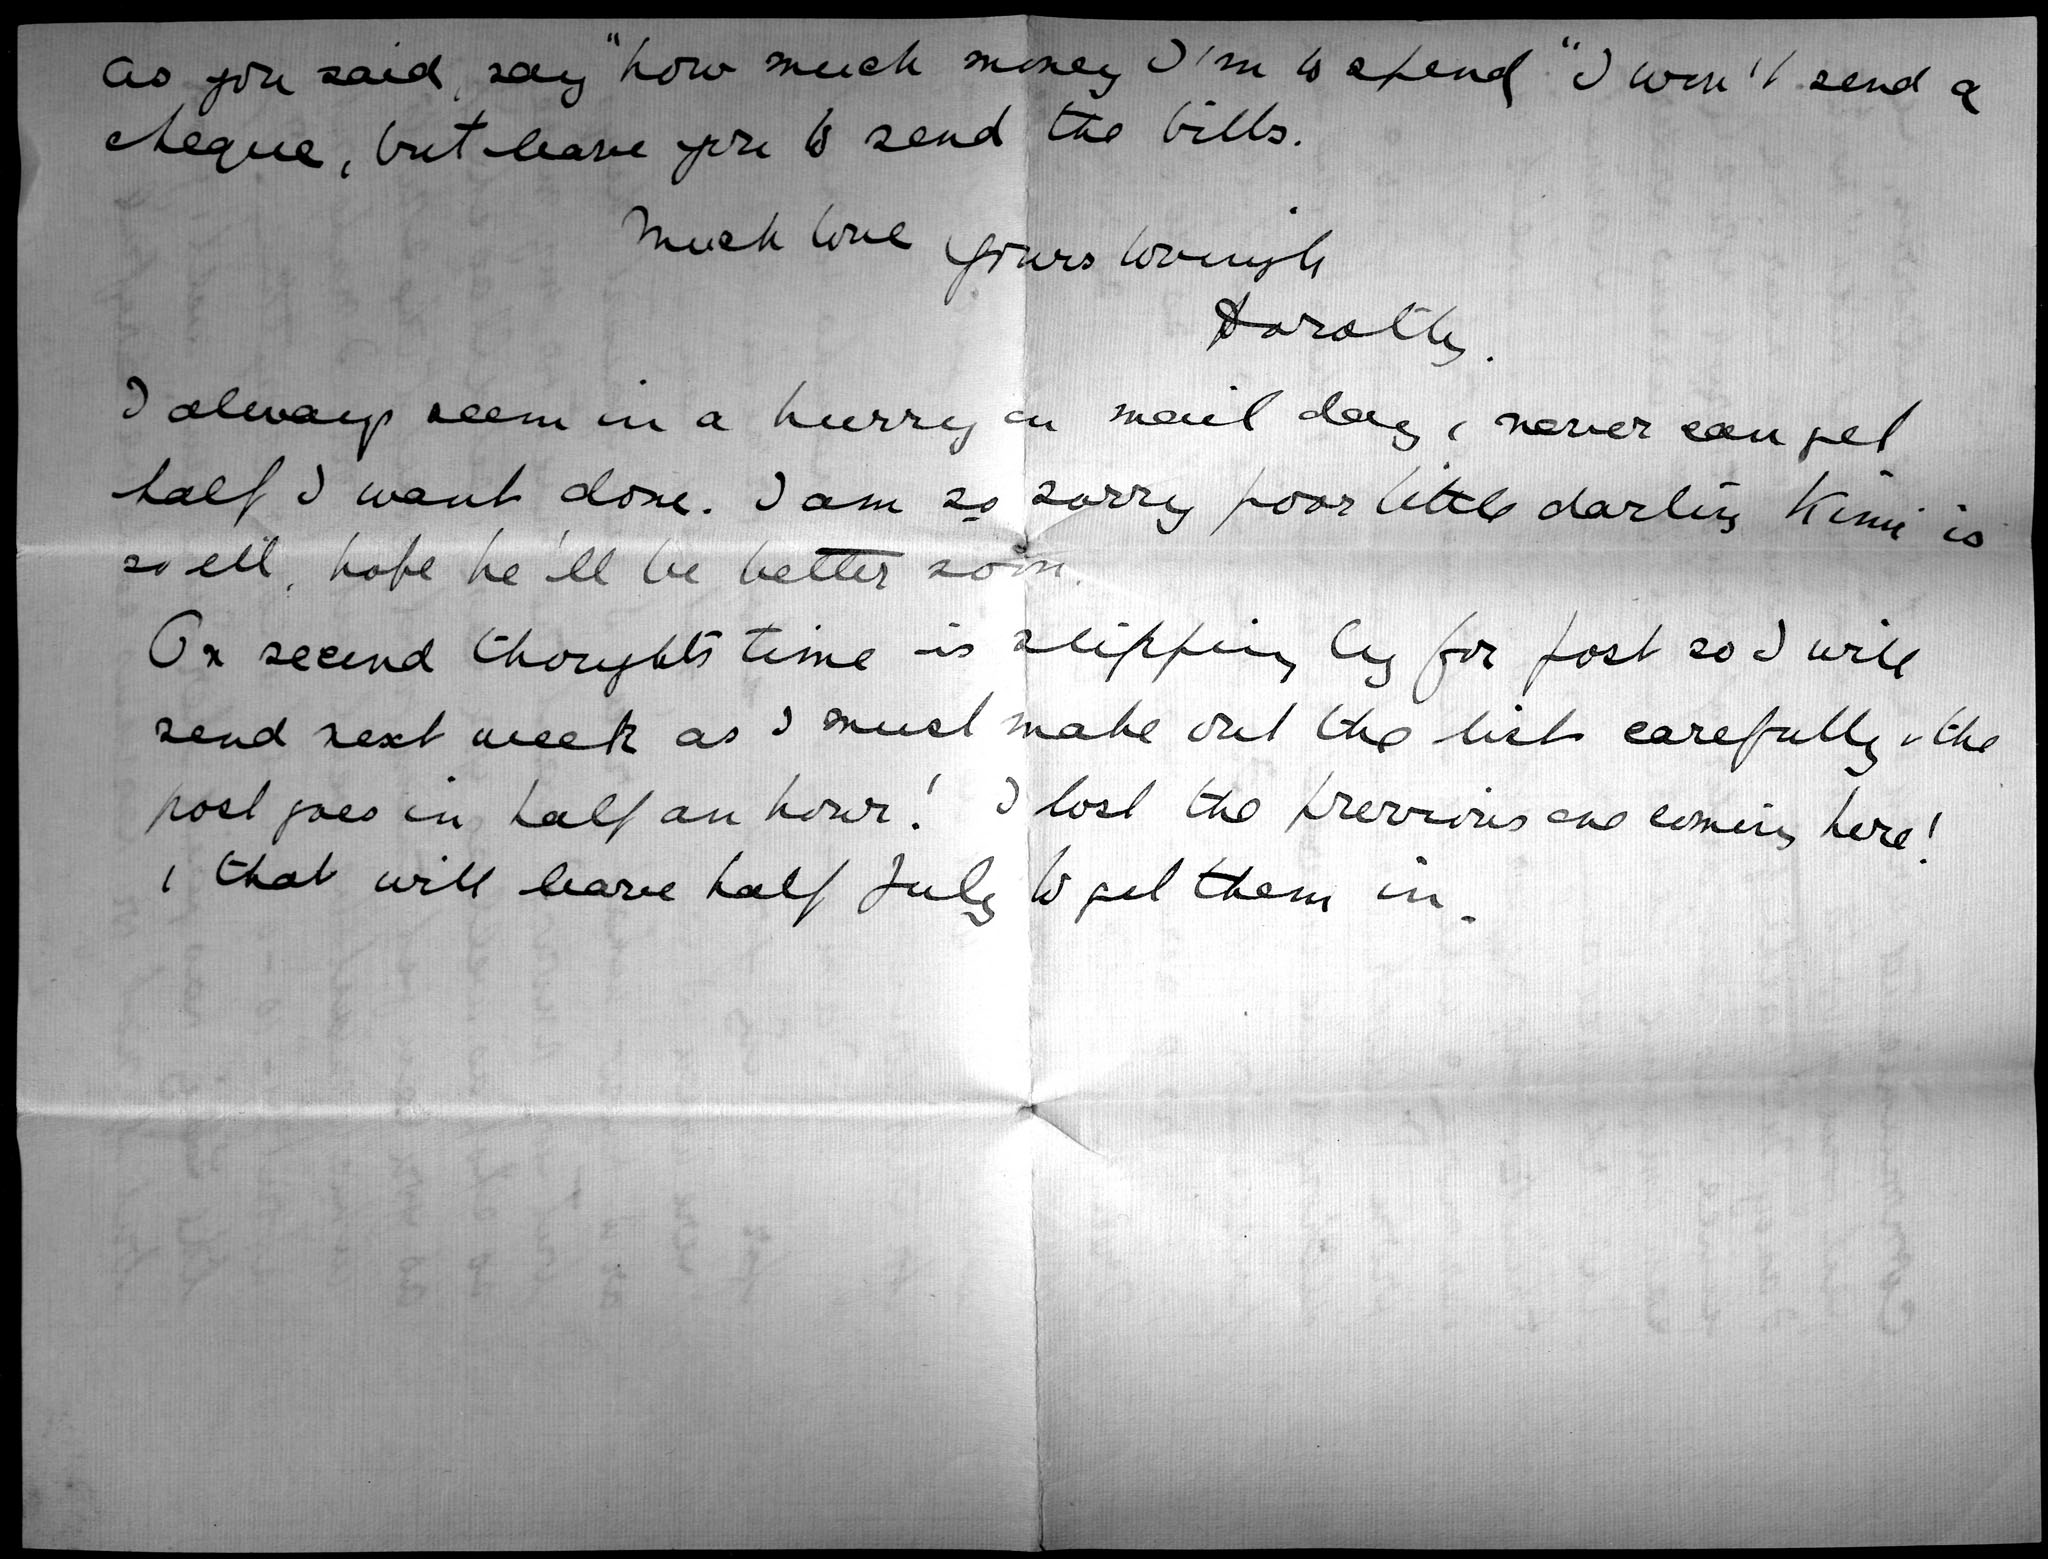 as you said, say "how much money I'm to spend" I won't send a
cheque, but leave you to send the bills.
Much love yours lovingly
Dorothy.
I always seem in a hurry on mail day, & never can get
half I want done. I am so sorry poor little darling Kimi is
so ill, hope he'll be better soon.
On second thoughts time is slipping by for post so I will
send next week as I must make out the list carefully & the
post goes in half an hour! I lost the previous one coming here!
& that will leave half July to get them in.